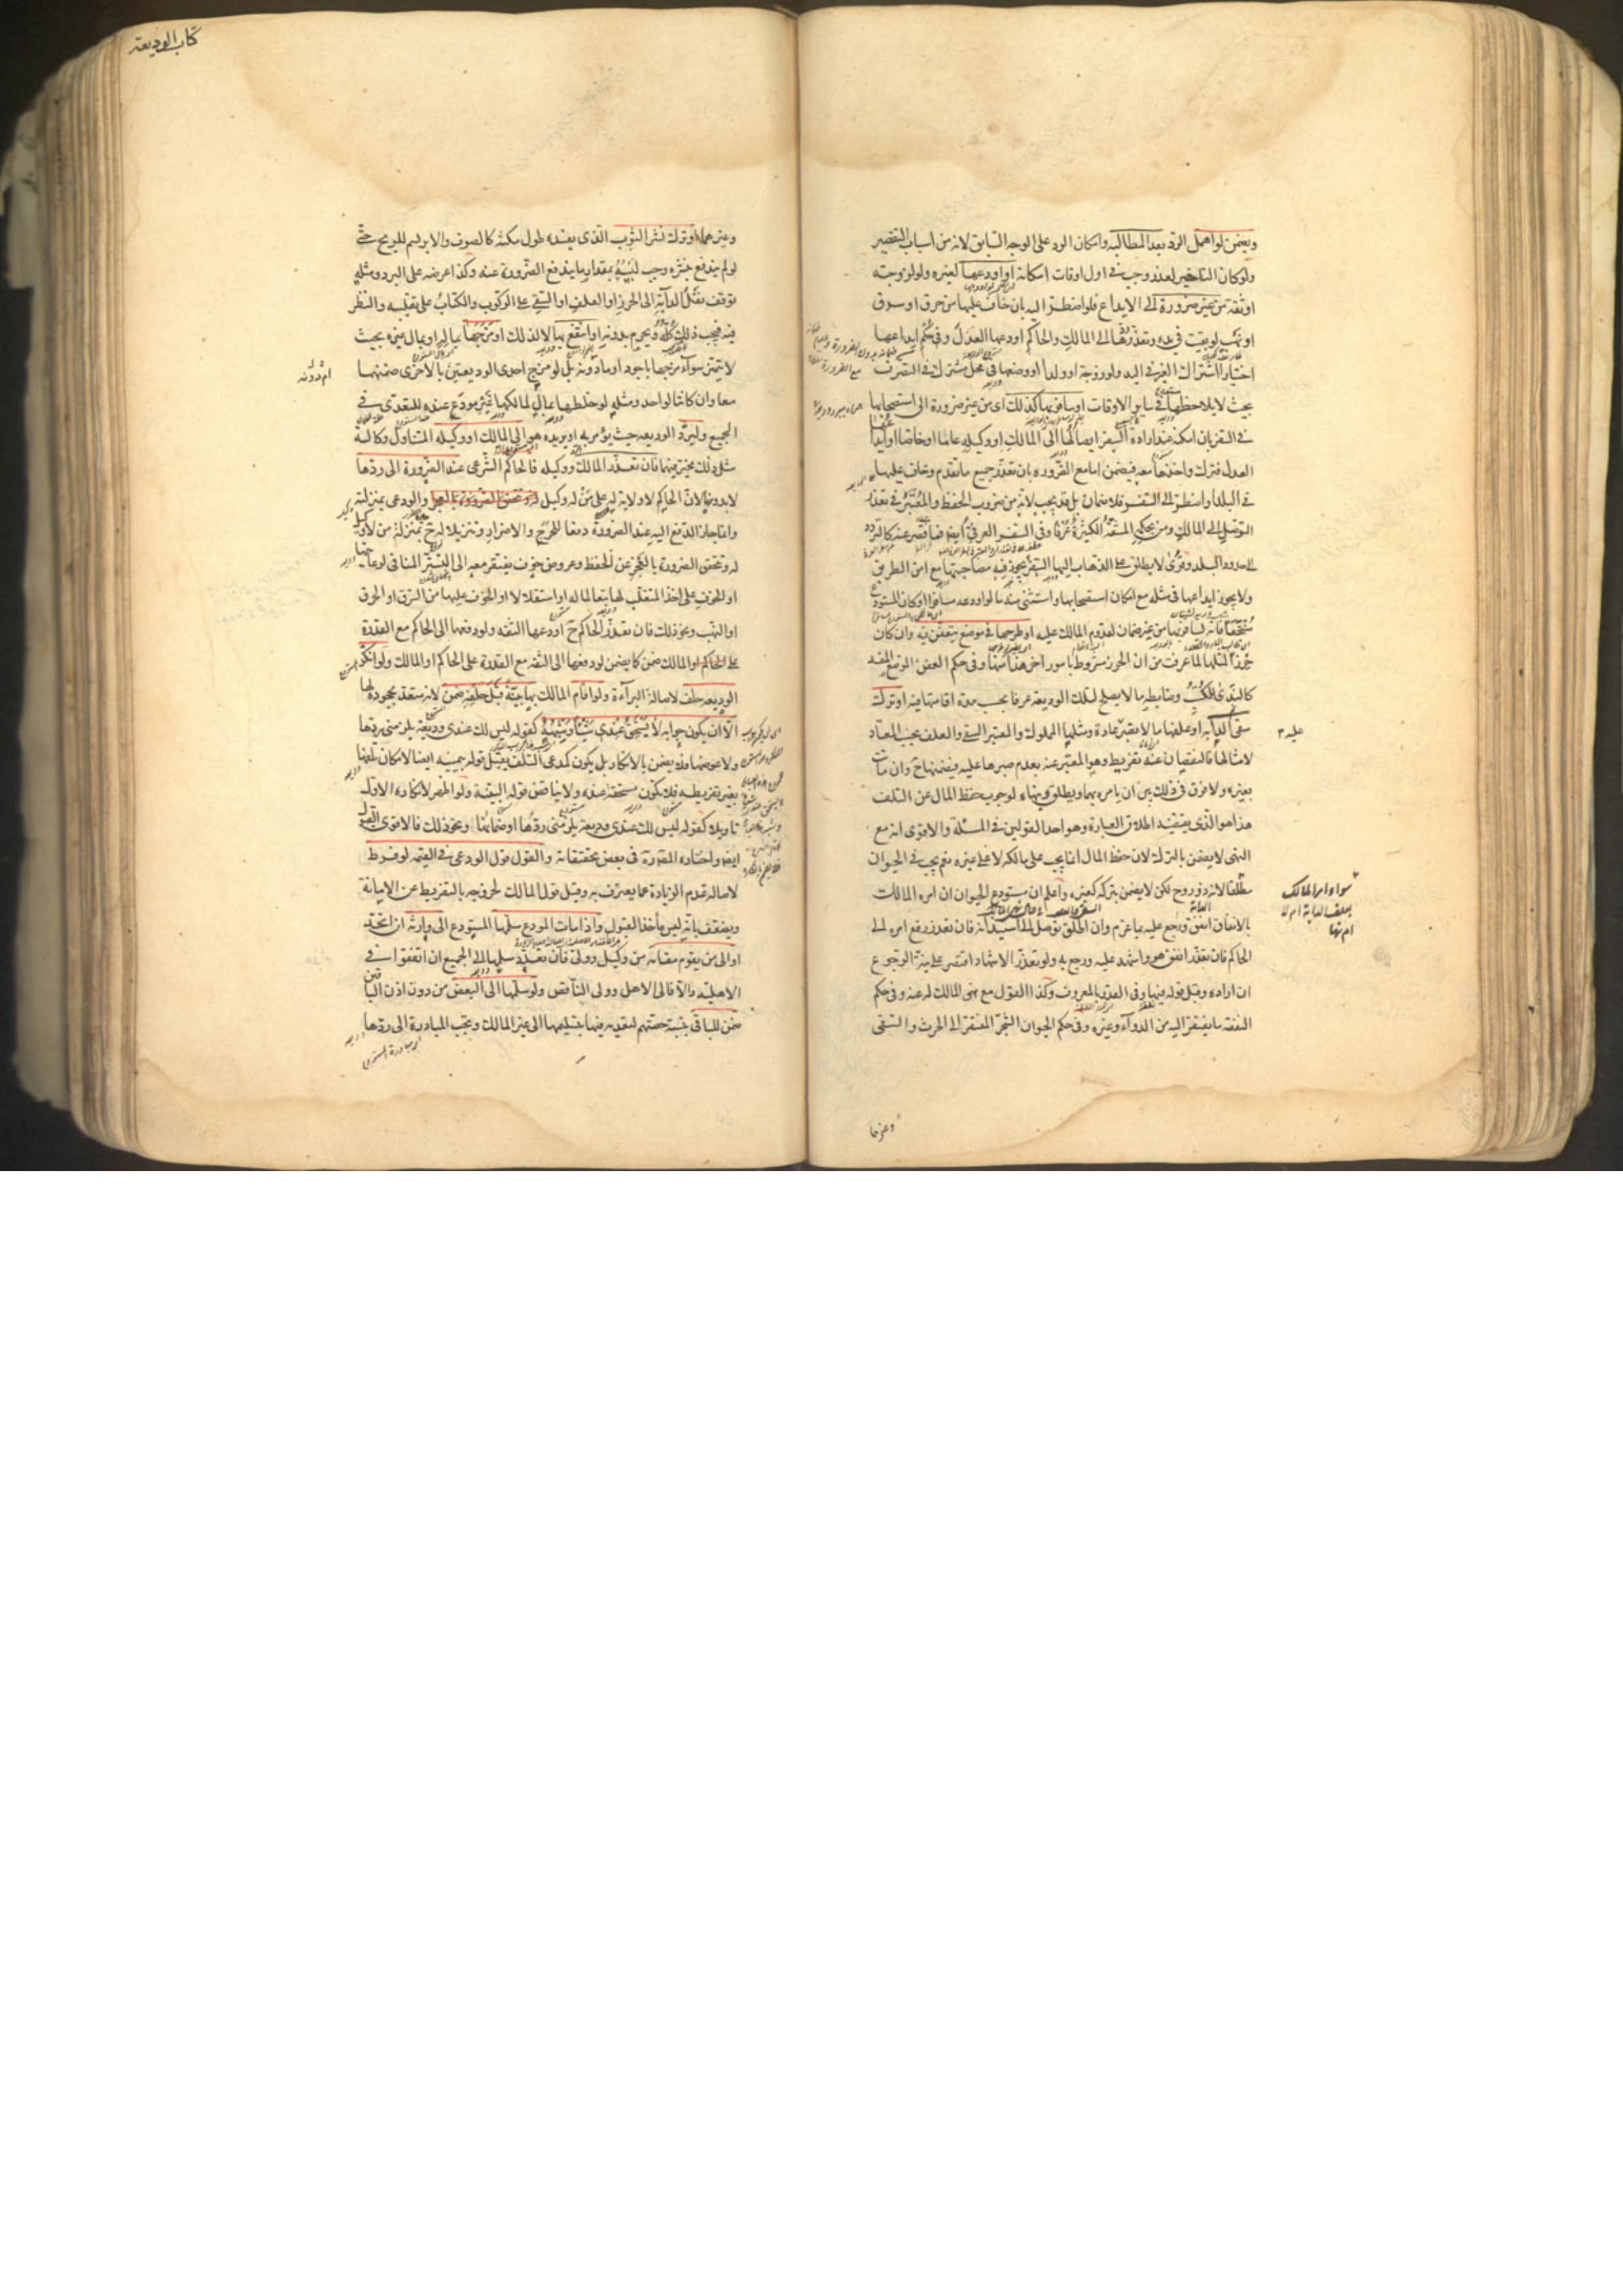 ويضمن لو اهمل الرد بعد المطالبة وامكان الرد على الوجه السابق لانه من اسباب التقصير
ولو كان التاخير لعذر وجب في اول اوقات امكانه او اودعها لغيره ولو لزوجة
او ثقة من غير ضرورة الى الايداع فلو اضطر اليه بان خاف عليها من حرق او سرق
او نهب لو بقيت في يده وتعذر ردها الى المالك والحاكم اودعها العدل وفي حكم ايداعها
اختيارا اشتراك الغير في اليد ولو زوجة او ولدا او وضعها في محل مشترك في التصرف
بحيث لا يلاحظها في ساير الاوقات او سافر بها كذلك اى من غير ضرورة الى استصحابها
في السفر بان امكنه عند ارادة السفر ايصالها الى المالك او وكيله عاما او خاصا او ايداعها
العدل فترك واخذها معه فيضمن اما مع الضرورة بان تعذر جميع ما تقدم وخاف عليها
في البلد او اضطر الى السفر فلا ضمان بل قد يجب لانه من ضروب الحفظ والمعتبر في تعذر
التوصل الى المالك ومن بحكمه المشقة الكثيرة عرفا وفي السفر العرفي ايضا فما قصر عنه كالتردد
الى حدود البلد وقرى لا يطلق على الذهاب اليها السفر يجوز فيه مصاحبتها مع امن الطريق
ولا يجوز ايداعها في مثله مع امكان استصحابها واستثنى منه ما لو اودعه مسافرا او كان المستودع
منتجعا فانه يسافر بها من غير ضمان لقدوم المالك عليه او طرحها في موضع تتعفن فيه وان كان
حرزا لمثلها لما عرفت من ان الحرز مشروط بامور اخر هذا منها وفي حكم العفن الموضع المفسد
كالندى للكتب وضابطه ما لا يصلح لتلك الوديعة عرفا بحسب مدة اقامتها فيه او ترك
سقى الدابة او علفها ما لا تصبر عادة ومثلها المملوك والمعتبر السقى والعلف بحسب المعتاد
لامثالها فالنقصان عنه تفريط وهو المعبر عنه بعدم صبرها عليه فيضمنها ح وان ماتت
بغيره ولا فرق في ذلك بين ان يامره بهما ويطلق وينهاه لوجوب حفظ المال عن التلف
هذا هو الذى يقتضيه اطلاق العبارة وهو احد القولين في المسئلة والاقوى انه مع
النهى لا يضمن بالترك لان حفظ المال انما يجب على مالكه لا على غيره نعم يجب في الحيوان
مطلقا لانه ذو روح لكن لا يضمن بتركه كغيره واعلم ان مستودع الحيوان ان امره المالك
بالانفاق انفق ورجع عليه بما غرم وان اطلق توصل الى استيذانه فان تعذر رفع امره الى
الحاكم فان تعذر انفق هو واشهد عليه ورجع به ولو تعذر الاشهاد اقتصر على نية الرجوع
ان اراده وقبل قوله فيها وفى القدر بالمعروف وكذا القول مع نهى المالك له عنه وفي حكم
النفقة ما يفتقر اليه من الدواء وغيره وفي حكم الحيوان الشجر المفتقر الى الحرث والسقى
وغيرهما
سواء امر المالك
بعلف الدابة ام لا
ام نها
كتاب الوديعة
وغيرهما او ترك نشر الثوب الذى يفسده طول مكثه كالصوف والابريسم للريح حتى
لو لم يندفع بنشره وجب لبسه بمقدار ما يندفع الضرورة عنه وكذا عرضه على البرد ومثله
توقف نقل الدابة الى الحرز او العلف او السقى على الركوب والكتاب على تقليبه والنظر
فيه فيجب ذلك كله ويحرم بدونه او انتفع بها لا لذلك او مزجها بماله او بمال غيره بحيث
لا يتميز سواء مزجها باجود او مادونه بل لو مزج احدى الوديعتين بالاخرى ضمنهما
معا وان كانتا لواحد ومثله لو خلطها بمال لمالكهما غير مودع عنده للتعدى في
الجميع وليرد الوديعة حيث يؤمر به او يريده هو الى المالك او وكيله المتناول وكالته
مثل ذلك مخير فيهما فان تعذر المالك او وكيله فالحاكم الشرعى عند الضرورة الى ردها
لا بدونها لان الحاكم لا ولاية له على من له وكيل والودعى بمنزلته
وانما جاز الدفع اليه عند الضرورة دفعا للحرج والاضرار وتنزيلا له ح منزلة من لا وكيل
له وتتحقق الضرورة بالعجز عن الحفظ وعروض خوف يفتقر معه الى التستر المنافي لرعايتها
او الخوف على اخذ المتغلب لها تبعا لماله او استقلالا او الخوف عليها من السرق او الحرق
او النهب ونحو ذلك فان تعذر الحاكم ح اودعها الثقة ولو دفعها الى الحاكم مع القدرة
على المالك ضمن كما يضمن لو دفعها الى الثقة مع القدرة على الحاكم او المالك ولو انكر
الوديعة حلف لاصالة البراءة ولو اقام المالك بها بينة قبل حلفه ضمن لانه متعد بجحوده لها
الا ان يكون جوابه لا يستحق عندى شيئا وشبهه كقوله ليس لك عندى وديعة يلزمنى ردها
ولا عوضها فلا يضمن بالانكار بل يكون كمدعى التلف يقبل قوله بيمينه ايضا لامكان تلفها
بغير تفريط فلا تكون مستحقة عنده ولا يناقض قوله البينة ولو اظهر لانكاره الاول
تاويلا كقوله ليس لك عندى وديعة يلزمنى ردها او ضمانها ونحو ذلك فالاقوى القبول
ايضا واختاره المصنف في بعض تحقيقاته والقول قول الودعى في القيمة لو فرط
لاصالة عدم الزيادة عما يعترف به وقيل قول المالك لخروجه بالتفريط عن الامانة
ويضعف بانه ليس ماخذ القبول واذا مات المودع سلمها المستودع الى وارثه ان اتحد
او الى من يقوم مقامه من وكيل وولى فان تعدد سلمها الى الجميع ان اتفقوا في
الاهلية والا فالى الاهل وولى الناقص ولو سلمها الى البعض من دون اذن الباقين
ضمن للباقى بنسبة حصتهم لتعديه فيها بتسليمها الى غير المالك وتجب المبادرة الى ردها